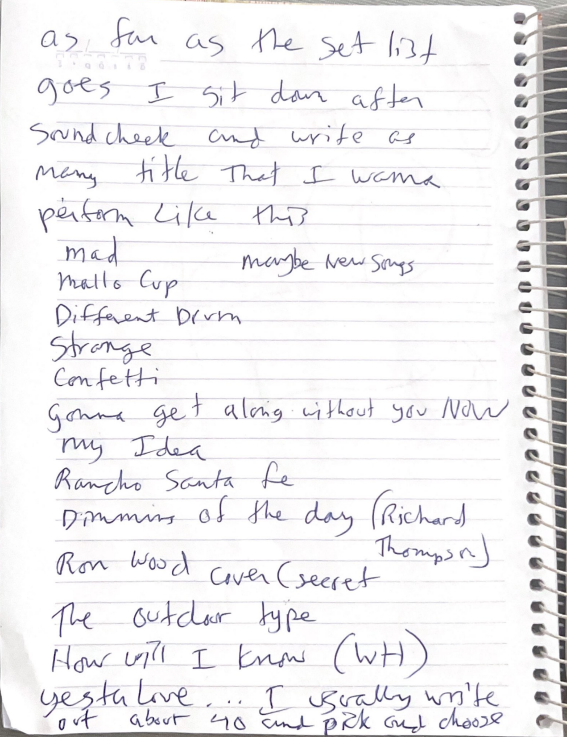 as far as the set list
goes I sit down after
soundcheck and write as
many title that I wanna
perform Like this
mad
maybe New Songs
Mallo Cup
Different Drum
Strange
Confetti
Gonna get along without you NOW
my Idea
Rancho Santa fe
Dimming of the day (Richard
Thompson)
Ron Wood cover (secret
The outdoor type
How will I know (WH)
yesta love .... I usually write
out about 40 and pick and choose